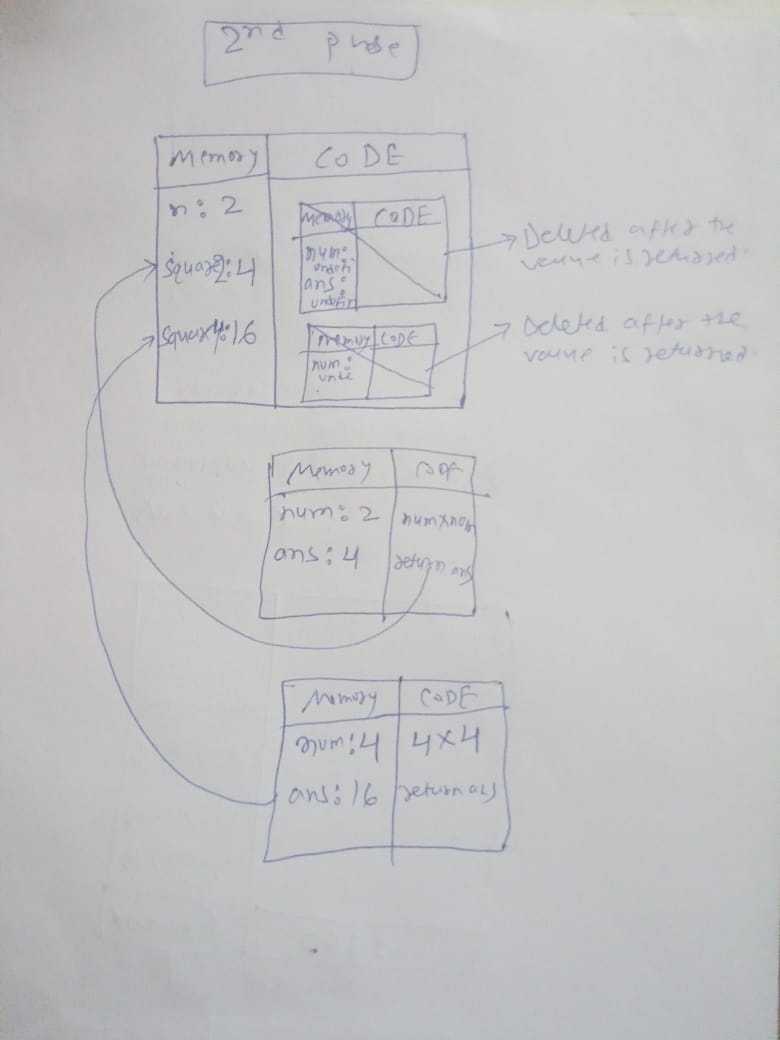 2nd phase
Memory CODE
n: 2
square2:4
square4:16
Memory CODE
num:
undefi
ans:
undefin
Memory CODE
num:
unde
Deleted after the
value is returned.
Deleted after the
value is returned.
Memory CODE
num: 2 num×num
ans: 4 return ans
Memory CODE
num: 4 4×4
ans: 16 return ans